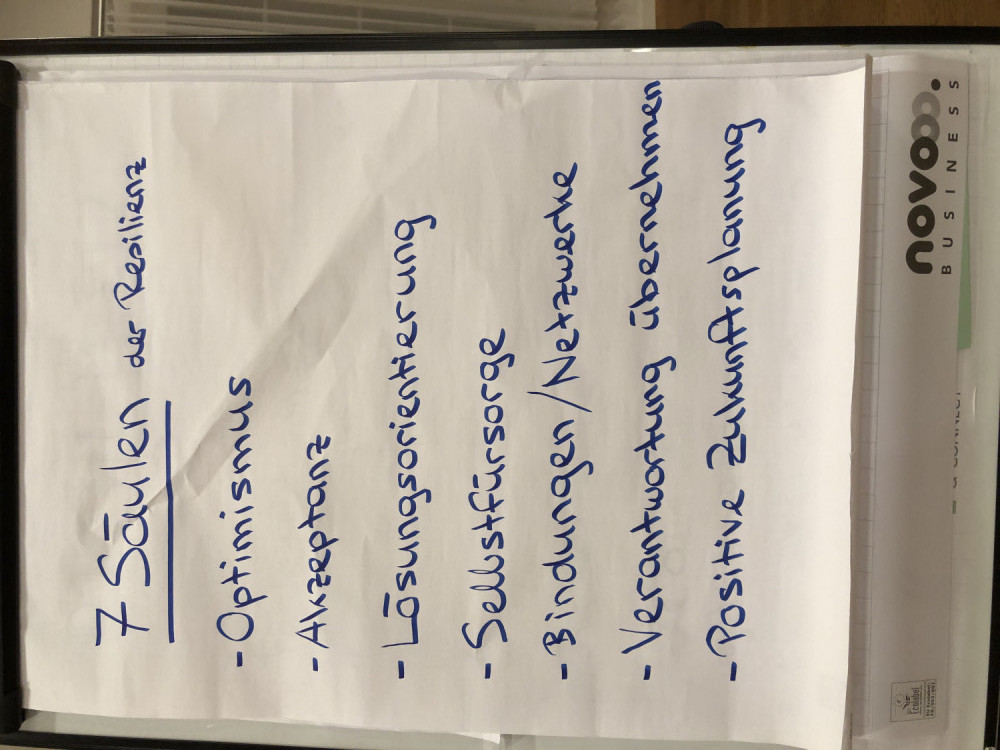 7 Säulen der Resilienz
- Optimismus
- Akzeptanz
- Lösungsorientierung
- Selbstfürsorge
- Bindungen/Netzwerke
- Verantwortung übernehmen
- Positive Zukunftsplanung
novooo.
BUSINESS
Ecolabel